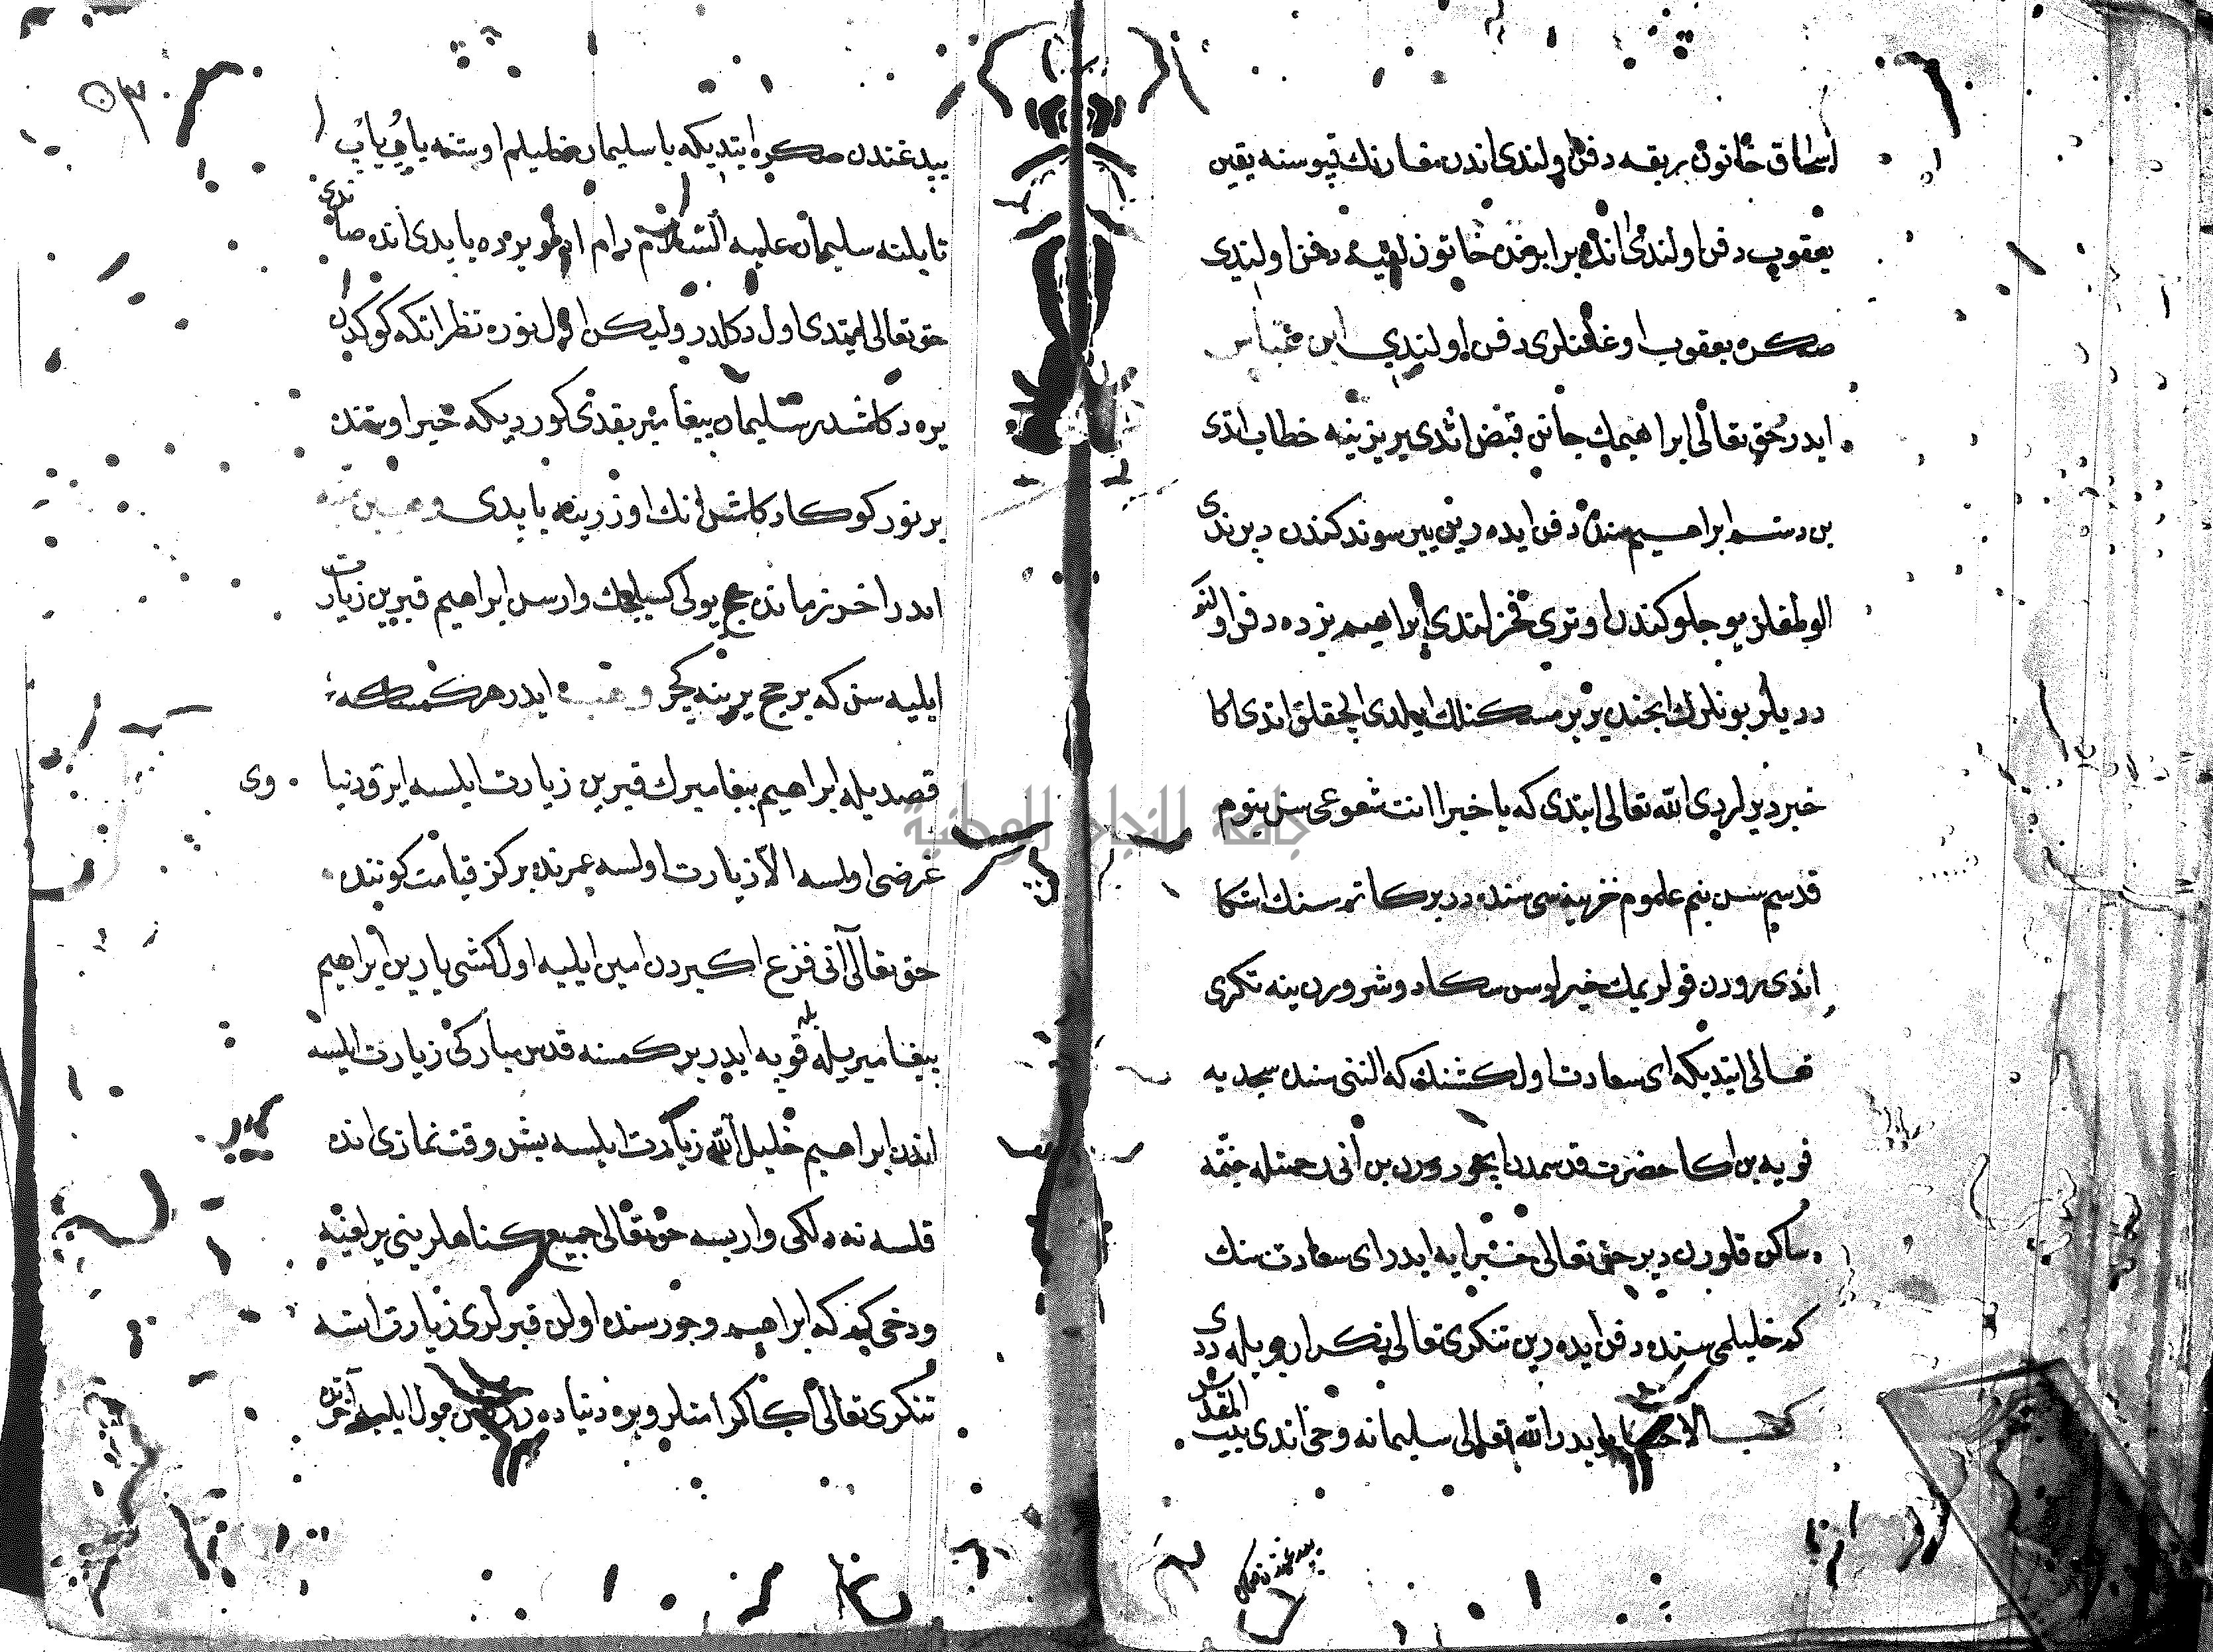 اسحاق خاتون ربقه دفن اولندی اندن مغارنك قپوسنه یقین
یعقوب دفن اولندی انده برابرنده خاتون لعیه دفن اولندی
صكره یعقوب اوغلنلری دفن اولندی ابن عباس
ایدر حق تعالی ابراهیمك جانن قبض اتدی یر یزینه خطاب اتدی
بن دستم ابراهیم سنده دفن ایده رین یر سوندكندن دپرندی
الو طغلر یوجلو كندن اوتری فخرلندی ابراهیم بزده دفن اولنه
ددیلر بونلرك ایچنده بر یر مسكنلك ایلدی الچقلق اتدی اكا
خبر دیرلردی الله تعالی ایتدی كه یا خیرا انت شعوعی سن بنوم
قدسم سن بنم علموم خزینه سی سنده در بركاتم سنك استكا
اندی رورن قولریمك خیرلوسن سكا دوشرورن ینه تكری
تعالی ایتدیكه ای سعادت اول كشنك كه النی سنده سجدیه
قویه بن اكا حضرت قدسمدن ایچورورن بن انی رحمتله جنتمه
ساكن قلورن دیر حق تعالی خبرایه ایدر ای سعادت سنك
كه خلیلمی سنده دفن ایده رین تنكری تعالی تكرار بویله ددی
كعب الاحبار ایدر الله تعالی سلیمانه وحی اندی بیت المقدس
یپدغندن صكره ایتدیكه یا سلیمان خلیلم اوستنه یاپی یاپ
تا بلنه سلیمان علیه السلام رام ادلو یرده یاپدی انده صاندی
حق تعالی ایتدی اول دكلدر ولیكن اول نوره نظر اتكه كوكدن
یره دكلشدر سلیمان پیغامبر بقدی كوردیكه خیر اوستنده
بر نور كوكدن دكلش انك اوزرینه یاپدی وهب بن منبه
ایدر اخر زمانده حج یولی كسیلجك وارسن ابراهیم قبرین زیارت
ایلیه سن كه بر حج یرینه كچر وهب ایدر هر كمسكه
قصدیله ابراهیم پیغامبرك قبرین زیارت ایلسه ایرو دنیا وی
غرضی اولسه الا زیارت اولسه عمرنده بر كز قیامت كوننده
حق تعالی آنی فزع اكبردن امین ایلیه اول كشی یارین ابراهیم
پیغامبریله قوپه ایدر بر كمسنه قدس مباركی زیارت ایلسه
اندن ابراهیم خلیل الله زیارت ایلسه بیش وقت نمازی انده
قلسه نه دلكی واریسه حق تعالی جمیع كناهلرینی یرلغیه
ودخی كیم كه ابراهیم وجورسنده اولن قبرلری زیارت اتسه
تنكری تعالی اكا كرامتلر ویره دنیاده رزقین بول ایلیه آخرتده